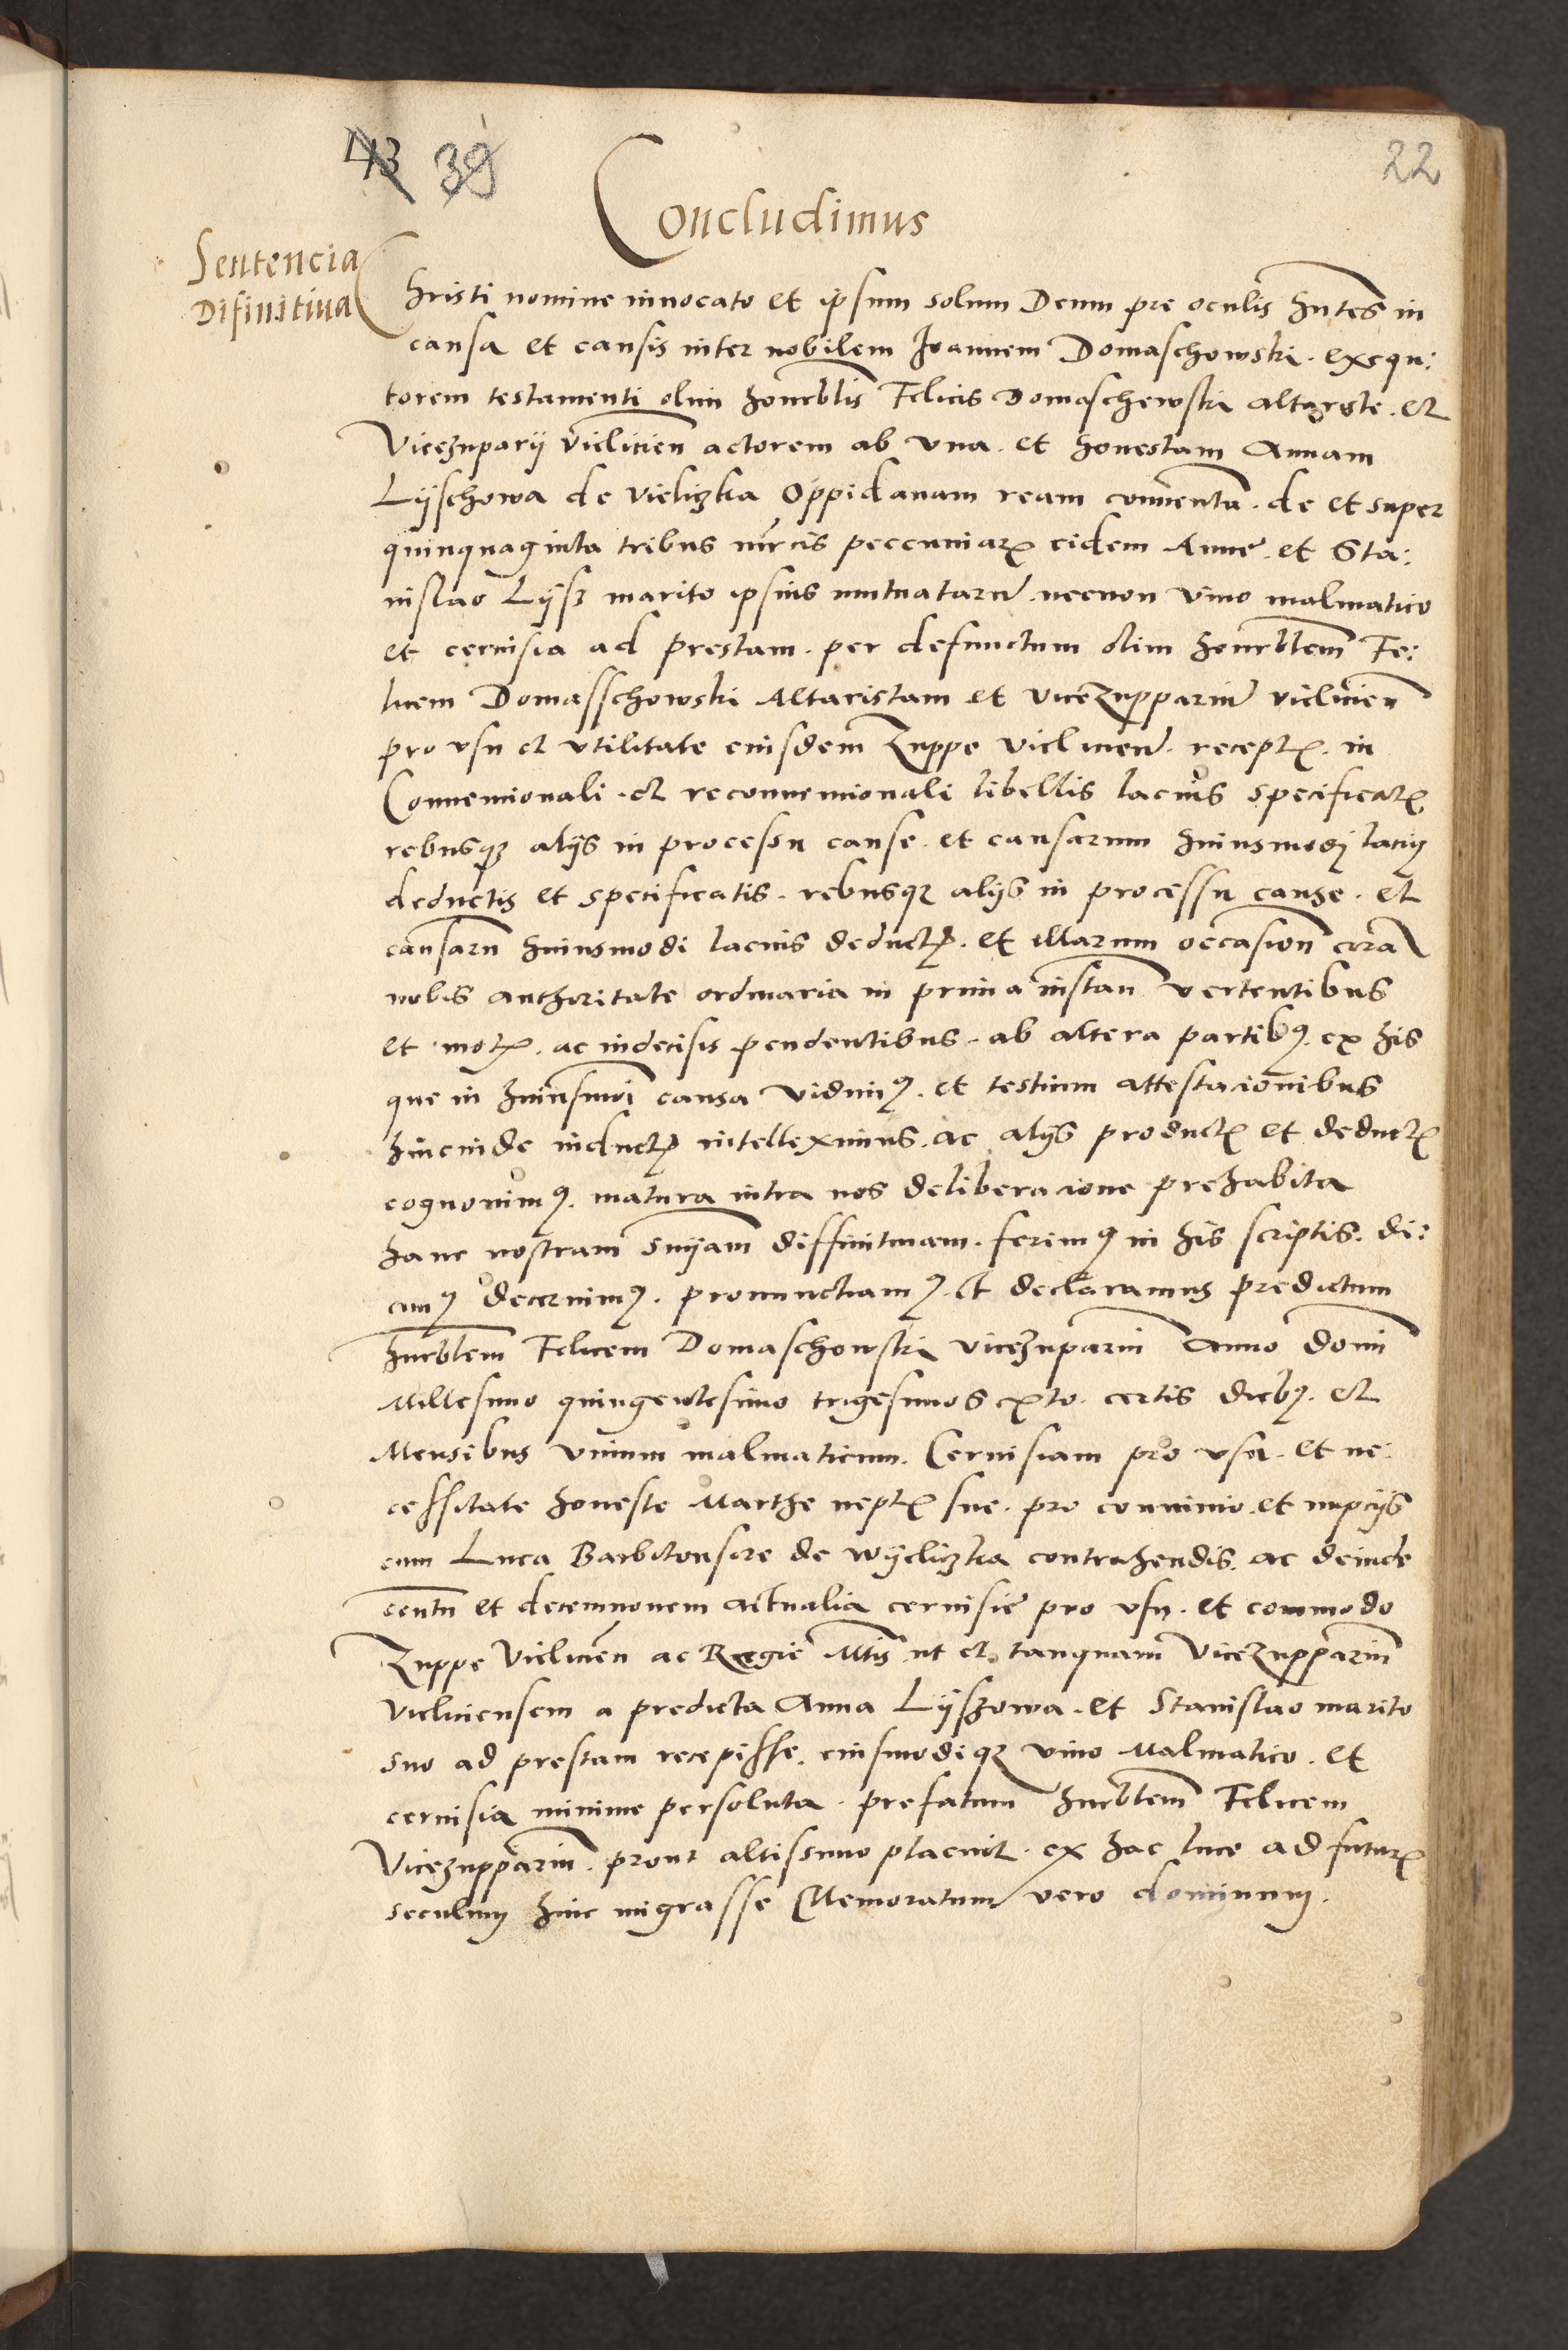 43 39
22
Concludimus
Sentencia
Difinitiua
Christi nomine inuocato et ipsum solum Deum pre oculis hntes in
causa et causis inter nobilem Joannem Domaschowski. exequ:
torem testamenti olim honrblis Felicis Domaschewski altariste. et
Vicezuparij vielicien actorem ab vna. et honestam Annam
Lijschowa de vieliczka Oppidanam ream conuentã. de et super
quinquaginta tribus mrcis peccuniarꝝ eidem Anne. et Sta:
nislao Lijsz marito ipsius mutuatarũ necnon vino malmatico
et ceruisia ad prestam. per defunctum olim honrblem Fe:
licem Domasschowski Altaristam et vicezupparium vielicien
pro vsu et vtilitate eiusdem Zuppe vielicien. recept. in
Conuencionali. et reconuencionali libellis lacius specificat
rebusqꝫ alijs in processu cause. et causarum huiusmodi lacius
deductis et specificatis. rebusqꝫ alijs in processu cause. et
causarũ huiusmodi lacius deduct. et illarum occasion corã
nobis authoritate ordinaria in prima instañ vertentibus
et mot. ac indecisis pendentibus. ab altera partibꝰ. ex his
que in huiusmoi causa vidimꝰ. et testium attestacionibus
hincinde induct intelleximus. ac alijs product et deduct
cognouimꝰ. matura intra nos deliberacione prehabita
hanc nostram snijam diffinitiuam. ferimꝰ in his scriptis. di:
cimꝰ decernimꝰ. pronunctiamꝰ. et declaramus predictum
hnrblem Felicem Domaschowski vicezuparium Anno domi
Millesimo quingentesimo trigesimosexto. certis diebꝰ. et
Mensibus vinum malmaticum. Ceruisiam pro vsu. et ne:
cessitate honeste Marthe nept sue. pro conuiuio. et nupcijs
cum Luca Barbitonsore de wijeliczka contrahendis. ac deinde
centũ et decemnouem actualia ceruisie pro vsu. et commodo
Zuppe vielicien ac Regie Mtis ut et tanquam vicezupparium
vieliciensem a predicta Anna Lijszowa. et Stanislao marito
suo ad prestam recepisse. eiusmodiqꝫ vino Malmatico. et
ceruisia minime persoluta. prefatum hnrblem Felicem
Vicezupparium. prout altissimo placuit. ex hac luce ad futur
seculum hinc migrasse Memoratum vero dominum.